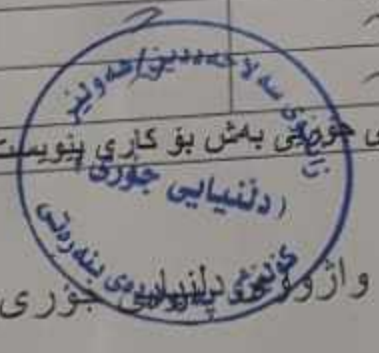 سەلاحەددین/هەولێر
ی جۆریی بەش بۆ کاری پێویست
(دڵنیایی جۆری)
کۆلێژی پەروەردەی بنەڕەتی
واژوو دڵنیایی جۆری